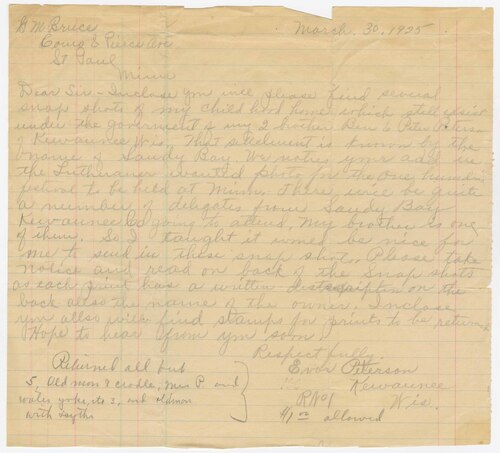 G M Bruce
March. 30. 1925
Como & Pierce Ave
St Paul
Minn
Dear Sir - Inclose you will please find several
snap shots of my child hood home which still exist
under the government of my 2 brother Ben & Peter Peterson
of Kewaunee Wis. That settlement is known by the
name of Sandy Bay. We notice your add in
the Lutheraner wanted for the one hundred
festival to be held at Minn. There will be quite
a number of delegates from Sandy Bay
Kewaunee Co going to attend, my brother is one
of them. So I taught it would be nice for
me to send in these snap shots. Please take
notice and read on back of the snap shots
as each print has a written description on the
back also the name of the owner. Inclose
you allso will find stamps for prints to be return
Hope to hear from you soon.
Respectfully.
Ever Peterson
Kewaunee
R No 1 Wis.
$1.00 allowed
Returned all but
5, Old mon & cradle, Mrs P. and
water yoke, its 3, and old mon
with scythe